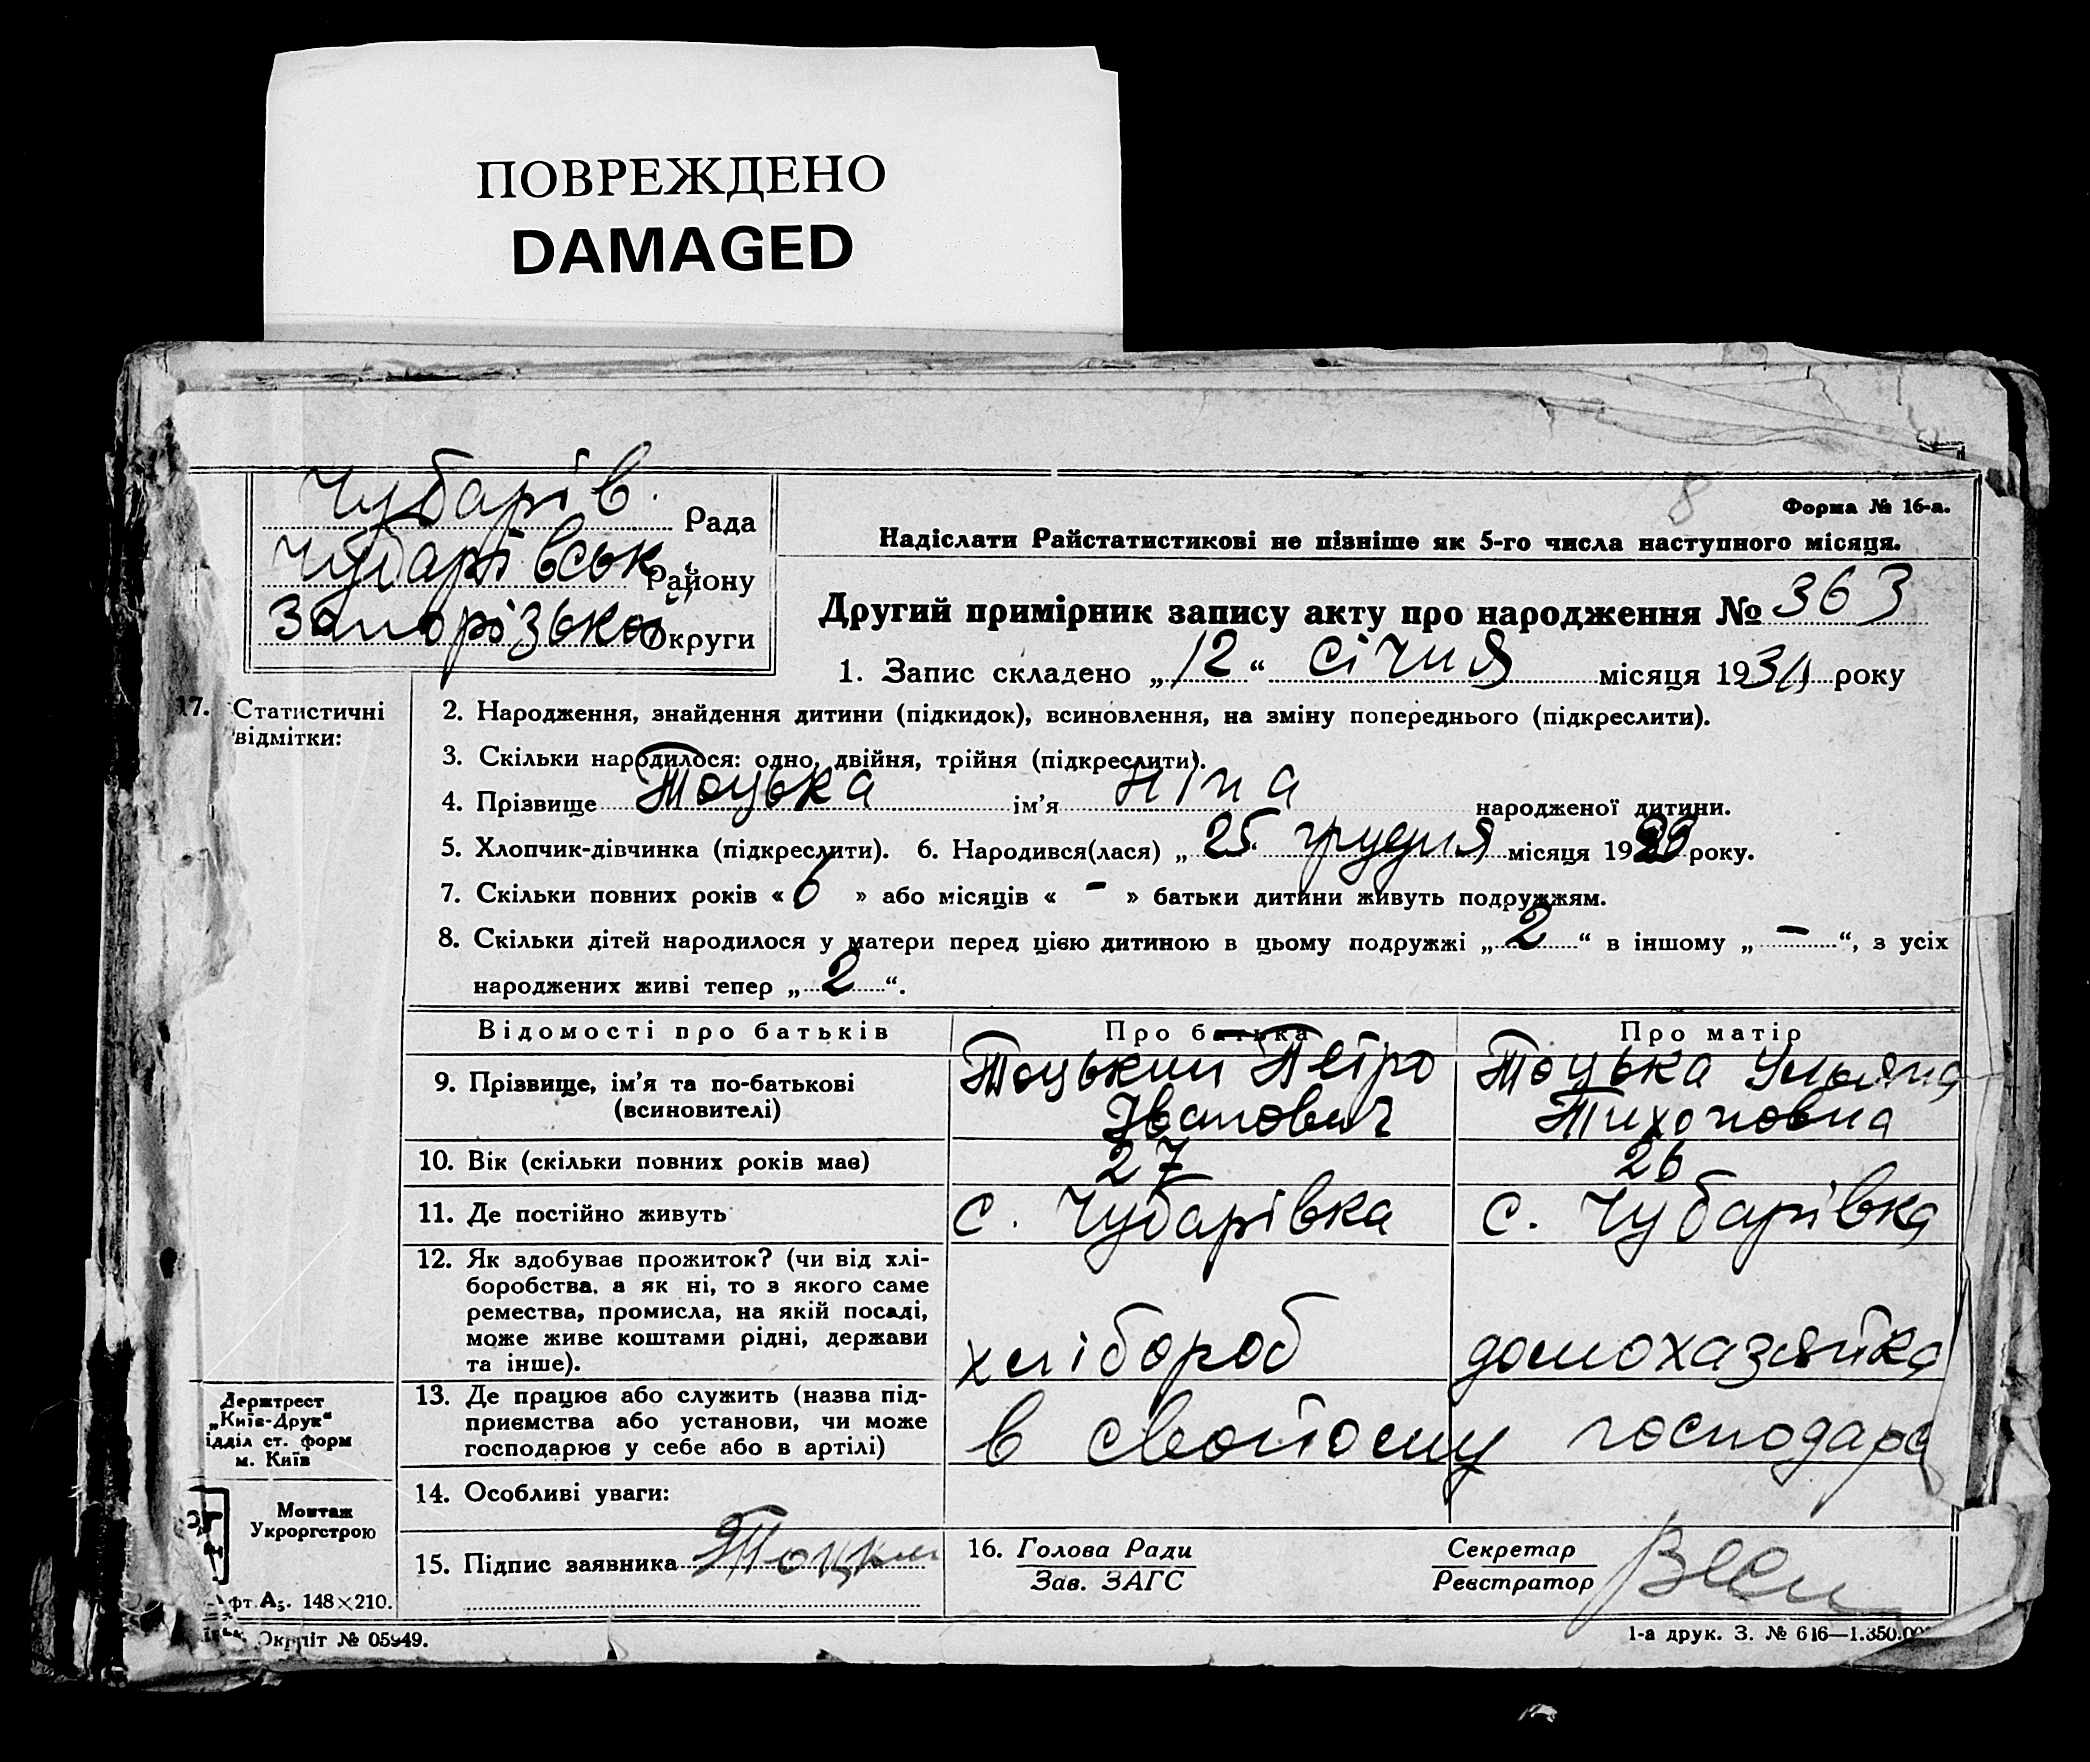 ПОВРЕЖДЕНО
DAMAGED
Чубарів. Рада
Чубарівськ. Району
Запорізької Округи
8
Форма № 16-а.
Надіслати Райстатистикові не пізніше як 5-го числа наступного місяця.
Другий примірник запису акту про народження № 363
1. Запис складено „12“ січня місяця 1930 року
17. Статистичні
відмітки:
2. Народження, знайдення дитини (підкидок), всиновлення, на зміну попереднього (підкреслити).
3. Скільки народилося: одно, двійня, трійня (підкреслити).
4. Прізвище Тоцька ім’я Ніна народженої дитини.
5. Хлопчик-дівчинка (підкреслити). 6. Народився(лася) „25 грудня місяця 1929 року.
7. Скільки повних років « 6 » або місяців « - » батьки дитини живуть подружжям.
8. Скільки дітей народилося у матери перед цією дитиною в цьому подружжі „2“ в іншому „-“, з усіх
народжених живі тепер „2“.
Відомості про батьків Про батька Про матір
9. Прізвище, ім’я та по-батькові
(всиновителі)
Тоцький Петро
Іванович
Тоцька Ульяна
Тихоновна
10. Вік (скільки повних років має) 27 26
11. Де постійно живуть с. Чубарівка с. Чубарівка
12. Як здобуває прожиток? (чи від хлі-
боробства, а як ні, то з якого саме
ремества, промисла, на якій посаді,
може живе коштами рідні, держави
та інше).
хлібороб домохазяйка
13. Де працює або служить (назва під-
приємства або установи, чи може
господарює у себе або в артілі)
в свойому господар
14. Особливі уваги:
15. Підпис заявника Тоцкий
16. Голова Ради
Зав. ЗАГС
Секретар
Реєстратор
Держтрест
„Київ-Друк“
ідділ ст. форм
м. Київ
Монтаж
Укроргстрою
фт. А5. 148×210.
Окрліт № 05949.
1-а друк. З. № 616—1.350.00